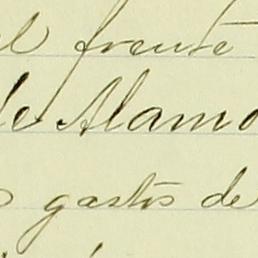 el frente
de Alamo
gastos de